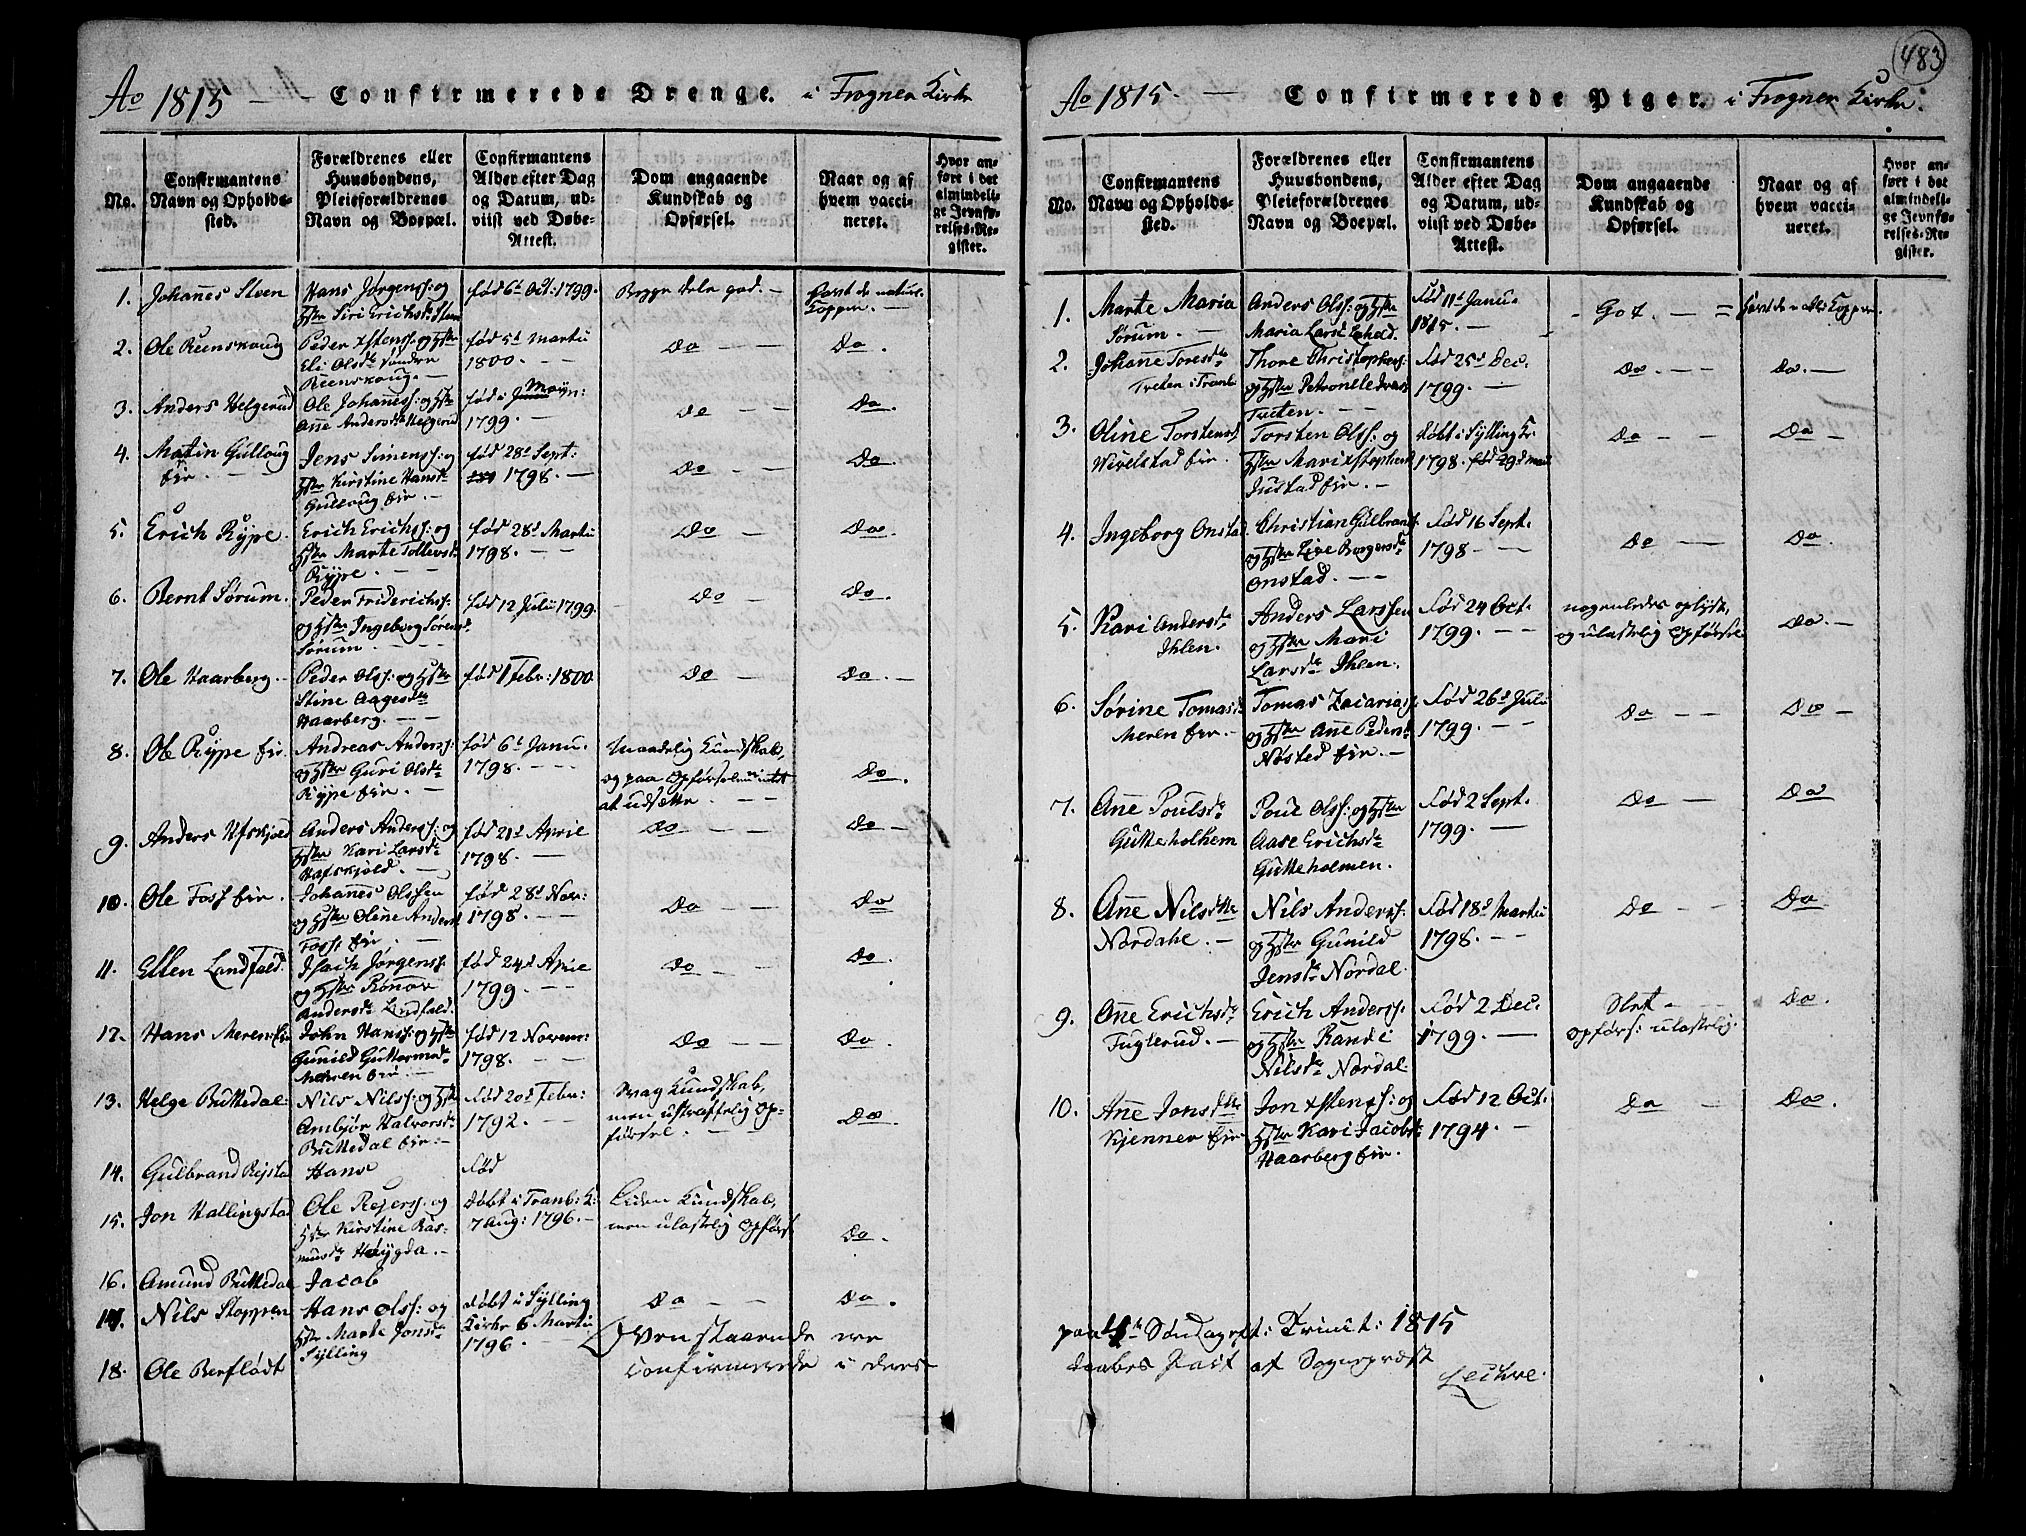 483
Ao 1815 — Confirmerede Drenge. i Frogner Kirke
No.
Confirmantens
Navn og Opholds-
sted.
Forældrenes eller
Huusbondens,
Pleieforældrenes
Navn og Boepæl.
Confirmantens
Alder efter Dag
og Datum, ud-
viist ved Døbe-
Attest.
Dom angaaende
Kundskab og
Opførsel.
Naar og af
hvem vacci-
neret.
Hvor an-
ført i det
almindeli-
ge Jevnfø-
relses-Re-
gister.
1. Johañes Steen
Hans Jørgens: og
Hstr Siri Erichsdr Steen
fød 6t Oct: 1799.
Begge dele god. —
havt de naturl.
Kopper. —
2. Ole Reenskoug
Peder xstens: og Hstr
Eli Olsdr søndre
Reenskoug. —
fød 5t Martii
1800. —
Do — —
Do.
3. Anders Helgerud
Ole Johañes: og Hstr
Aase Andersdr Helgerud
fød i Maij
1799. —
Do — —
Do.
4. Martin Gulloug
eir. —
Jens Simens: og
Hstr Kirstine Hansdr
Gulloug eir. —
fød 28d Sept:
1798. —
Do — —
Do.
5. Erich Rype.
Erich Erichs: og
Hstr Marte Tollevsdr
Rype. —
fød 28d Martii
1798. — —
Do —
Do.
6. Bernt Sørum.
Peder Friderichs:
og Hstr Ingeborg Sørensdr
Sørum. —
fød 12 Julii 1799.
Do —
Do.
7. Ole Haarberg. —
Peder Ols: og Hstr
Stine Aagesdr
Haarberg. — —
fød 1 Febr: 1800
Do —
Do. —
8. Ole Rype eir.
Andreas Anders:
og Hstr Guri Olsdr
Rype eir. —
fød 6t Janu.
1798. — —
Maadelig Kundskab,
og paa Opførselen intet
at udsætte. — —
Do.
9. Anders Ufskjold
Anders Anders: og
Hstr Kari Larsdr
Hafskjold. —
fød 21d April
1798. —
Do — —
Do —
10. Ole Foss eir.
Johañes Olssen
og Hstr Oline Andersd
Foss eir. —
fød 28d Nov:
1798. — —
Do — —
Do
11. Ellen Landfald.
Isach Jørgens:
og Hstr Rønov
Andersdr Lindfald.
fød 24d April
1799. — —
Do — —
Do.
12. Hans Meren eir
John Hans: og Hstr
Gunild Guttormsdr
Mehren eir. —
fød 12 Novem:
1798. —
Do —
Do.
13. Helge Buttedal.
Nils Nils: og Hstr
Ambjør Halvorsdr
Buttedal eir. —
Fød 20d Febr:
1792. —
Svag Kundskab,
men ustraffelig Op-
førsel. —
Do.
14. Gulbrand Rejstad
Hans
Fød
15. Jon Hallingstad
Ole Rejers: og
Hstr Kirstine Ras-
musdr Høygda. —
Døbt i Tranb: K:
7 Aug: 1796. —
Liden Kundskab,
men ulastelig Opførs:
Do.
16. Amund Buttedal
Jacob
17. Nils Stoppen
Hans Ols: og
Hstr Marte Jonsdr
Sylling
døbt i Sylling
Kirke 6 Martii
1796. —
Do — —
Do.
18. Ole Berflødt
Ovenstaaende ere
confirmerede i deres
Ao 1815. — Confirmerede Piger. i Frogner Kirke.
No.
Confirmantens
Navn og Opholds-
sted.
Forældrenes eller
Huusbondens,
Pleieforældrenes
Navn og Boepæl.
Confirmantens
Alder efter Dag
og Datum, ud-
viist ved Døbe-
Attest.
Dom angaaende
Kundskab og
Opførsel.
Naar og af
hvem vacci-
neret.
Hvor an-
ført i det
almindeli-
ge Jevnfø-
relses-Re-
gister.
1. Marte Maria
Sørum. —
Anders Ols: og Hstr
Maria Larsd
Fød 11t Janu.
1815. —
Got. —
havt de Kopper.
2. Johañe Toresdr
Treten i Tranb
Thore Christophers:
og Hstr Petronelle
Treten. —
Fød 25d Dec.
1799. —
Do. —
Do. —
3. Oline Torstensd
Wivelstad eir. —
Torsten Ols: og
Hstr Mari xstophersd
Justad eir. —
døbt i Sylling K.
1798. fød 29d Mai
Do — —
Do —
4. Ingeborg Onstad.
Christian Gulbrands:
og Hstr Live Borgersdr
Onstad. — —
Fød 16 Sept.
1798 — —
Do —
Do.
5. Kari Andersdr
Ihlen.
Anders Larssen
og Hstr Mari
Larsdr Ihlen.
Fød 24 Oct.
1799. —
nogenledes oplyst,
og ulastelig Opførsel
Do. —
6. Sørine Tomasdr
Meren eir. —
Tomas Zacarias:
og Hstr Añe Pedersd
Nøsted eir. —
Fød 26d Julii
1799. —
Do — —
Do —
7. Añe Poulsdr
Gutteholhem
Poul Ols: og Hstr
Aase Erichsdr
Gutteholmen.
Fød 2 Sept.
1799. —
Do —
Do
8. Añe Nilsdtr
Nordahl. —
Nils Anders:
og Hstr Gunild
Jensdr Nordal.
Fød 18d Martii
1798. — —
Do — —
Do.
9. Añe Erichsdr
Fuglerud. —
Erich Anders:
og Hstr Randi
Nilsdr Nordal.
Fød 2 Dec.
1799. —
Slet —
Opførs: ulastelig.
Do.
10. Añe Jonsdtr
Kjenner eir
Jon xstens: og
Hstr Kari Jacobsdr
Haarberg eir.
Fød 12 Oct.
1794. —
Do —
Do.
paa 4th Søndag eft: Trinit: 1815
Daabes Pact af Sogneprest
Lechve.